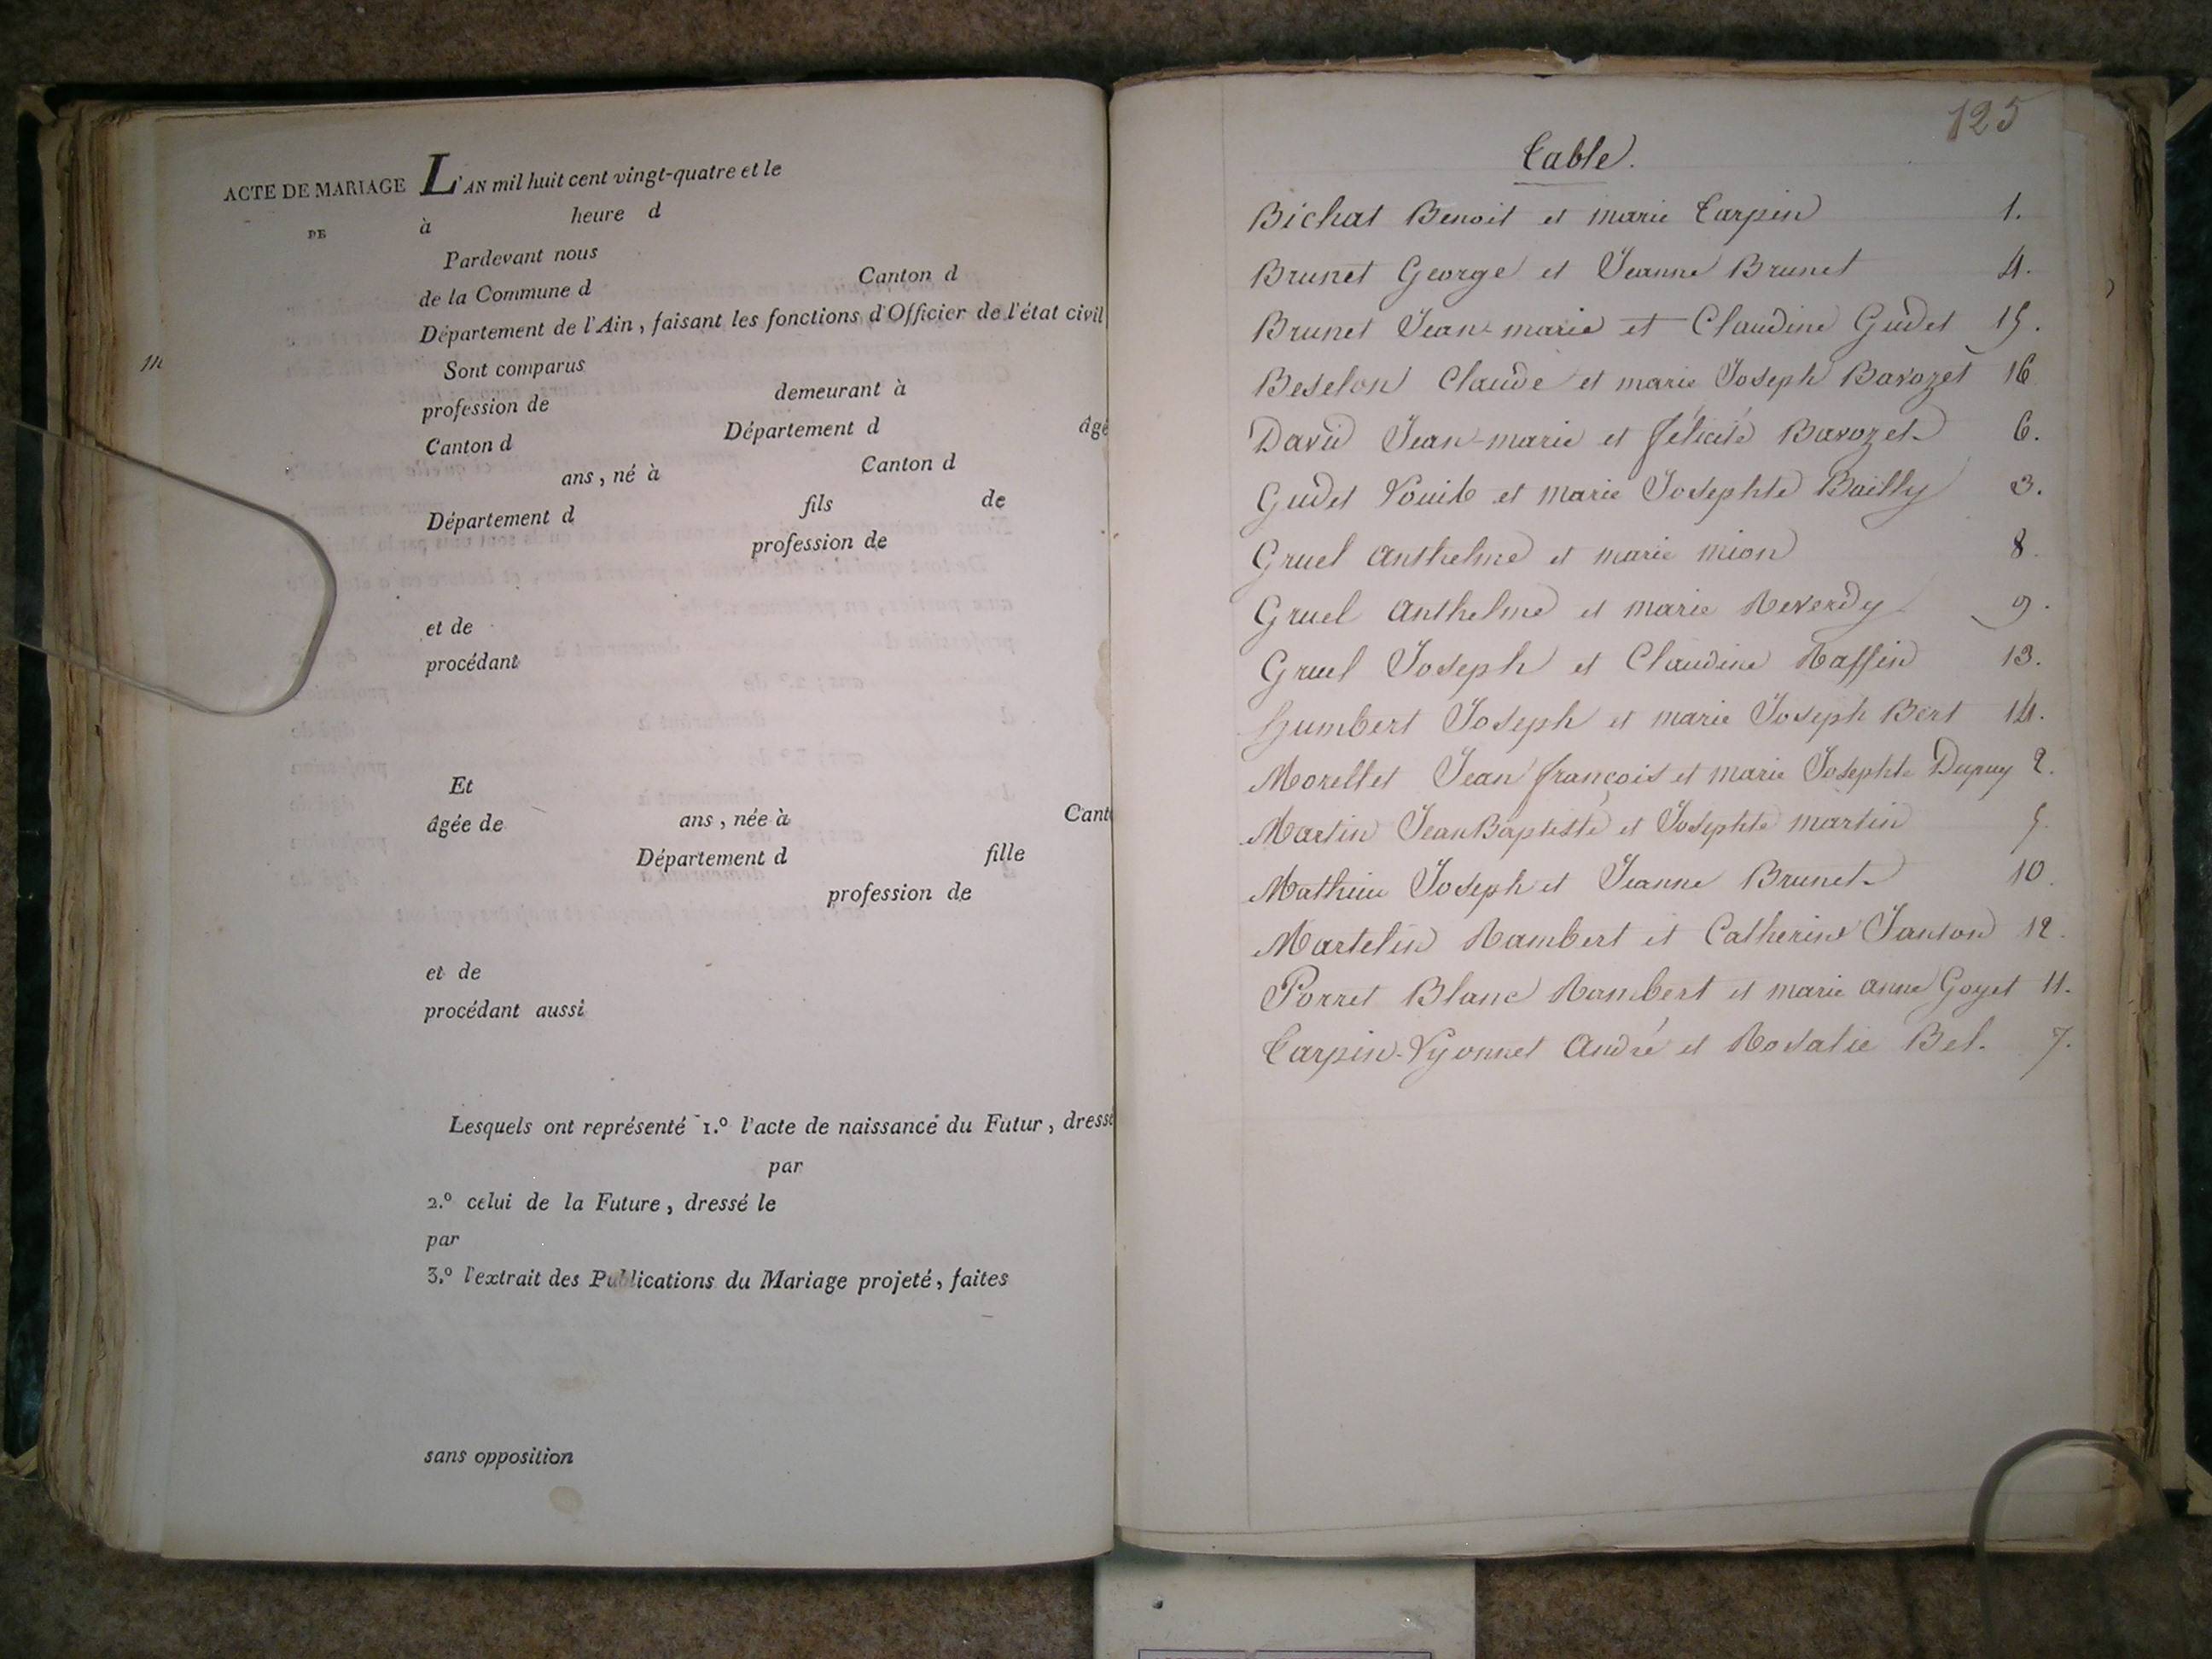 ACTE DE MARIAGE L'AN mil huit cent vingt-quatre et le
DE à heure d
Pardevant nous
de la Commune d Canton d
Département de l'Ain, faisant les fonctions d'Officier de l'état civil
Sont comparus
profession de demeurant à
Canton d Département d âgé
ans, né à Canton d
Département d fils de
profession de
et de
procédant
Et
âgée de ans, née à Cant
Département d fille
profession de
et de
procédant aussi
Lesquels ont représenté 1.º l'acte de naissance du Futur, dressé
par
2.º celui de la Future, dressé le
par
3.º l'extrait des Publications du Mariage projeté, faites
sans opposition
125
Table.
Bichat Benoit et marie Carpin 1.
Brunet George et Jeanne Brunet 4.
Brunet Jean-marie et Claudine Gudet 15.
Beselon Claude et marie Joseph Bavozet 16
David Jean-marie et félicité Bavozet 6.
Gudet Louis et marie Josephte Bailly 3.
Gruel Anthelme et marie mion 8.
Gruel Anthelme et marie Reverdy 9.
Gruel Joseph et Claudine Raffin 13.
Humbert Joseph et marie Joseph Bert 14.
Morellet Jean françois et marie Josephte Dupuy 2.
Martin Jean Baptiste et Josephte martin 5.
Mathieu Joseph et Jeanne Brunet 10.
Martelin Rambert et Catherine Janton 12.
Porret Blanc Rambert et marie anne Goyet 11.
Carpin-Lyonnet André et Rosalie Bel. 7.